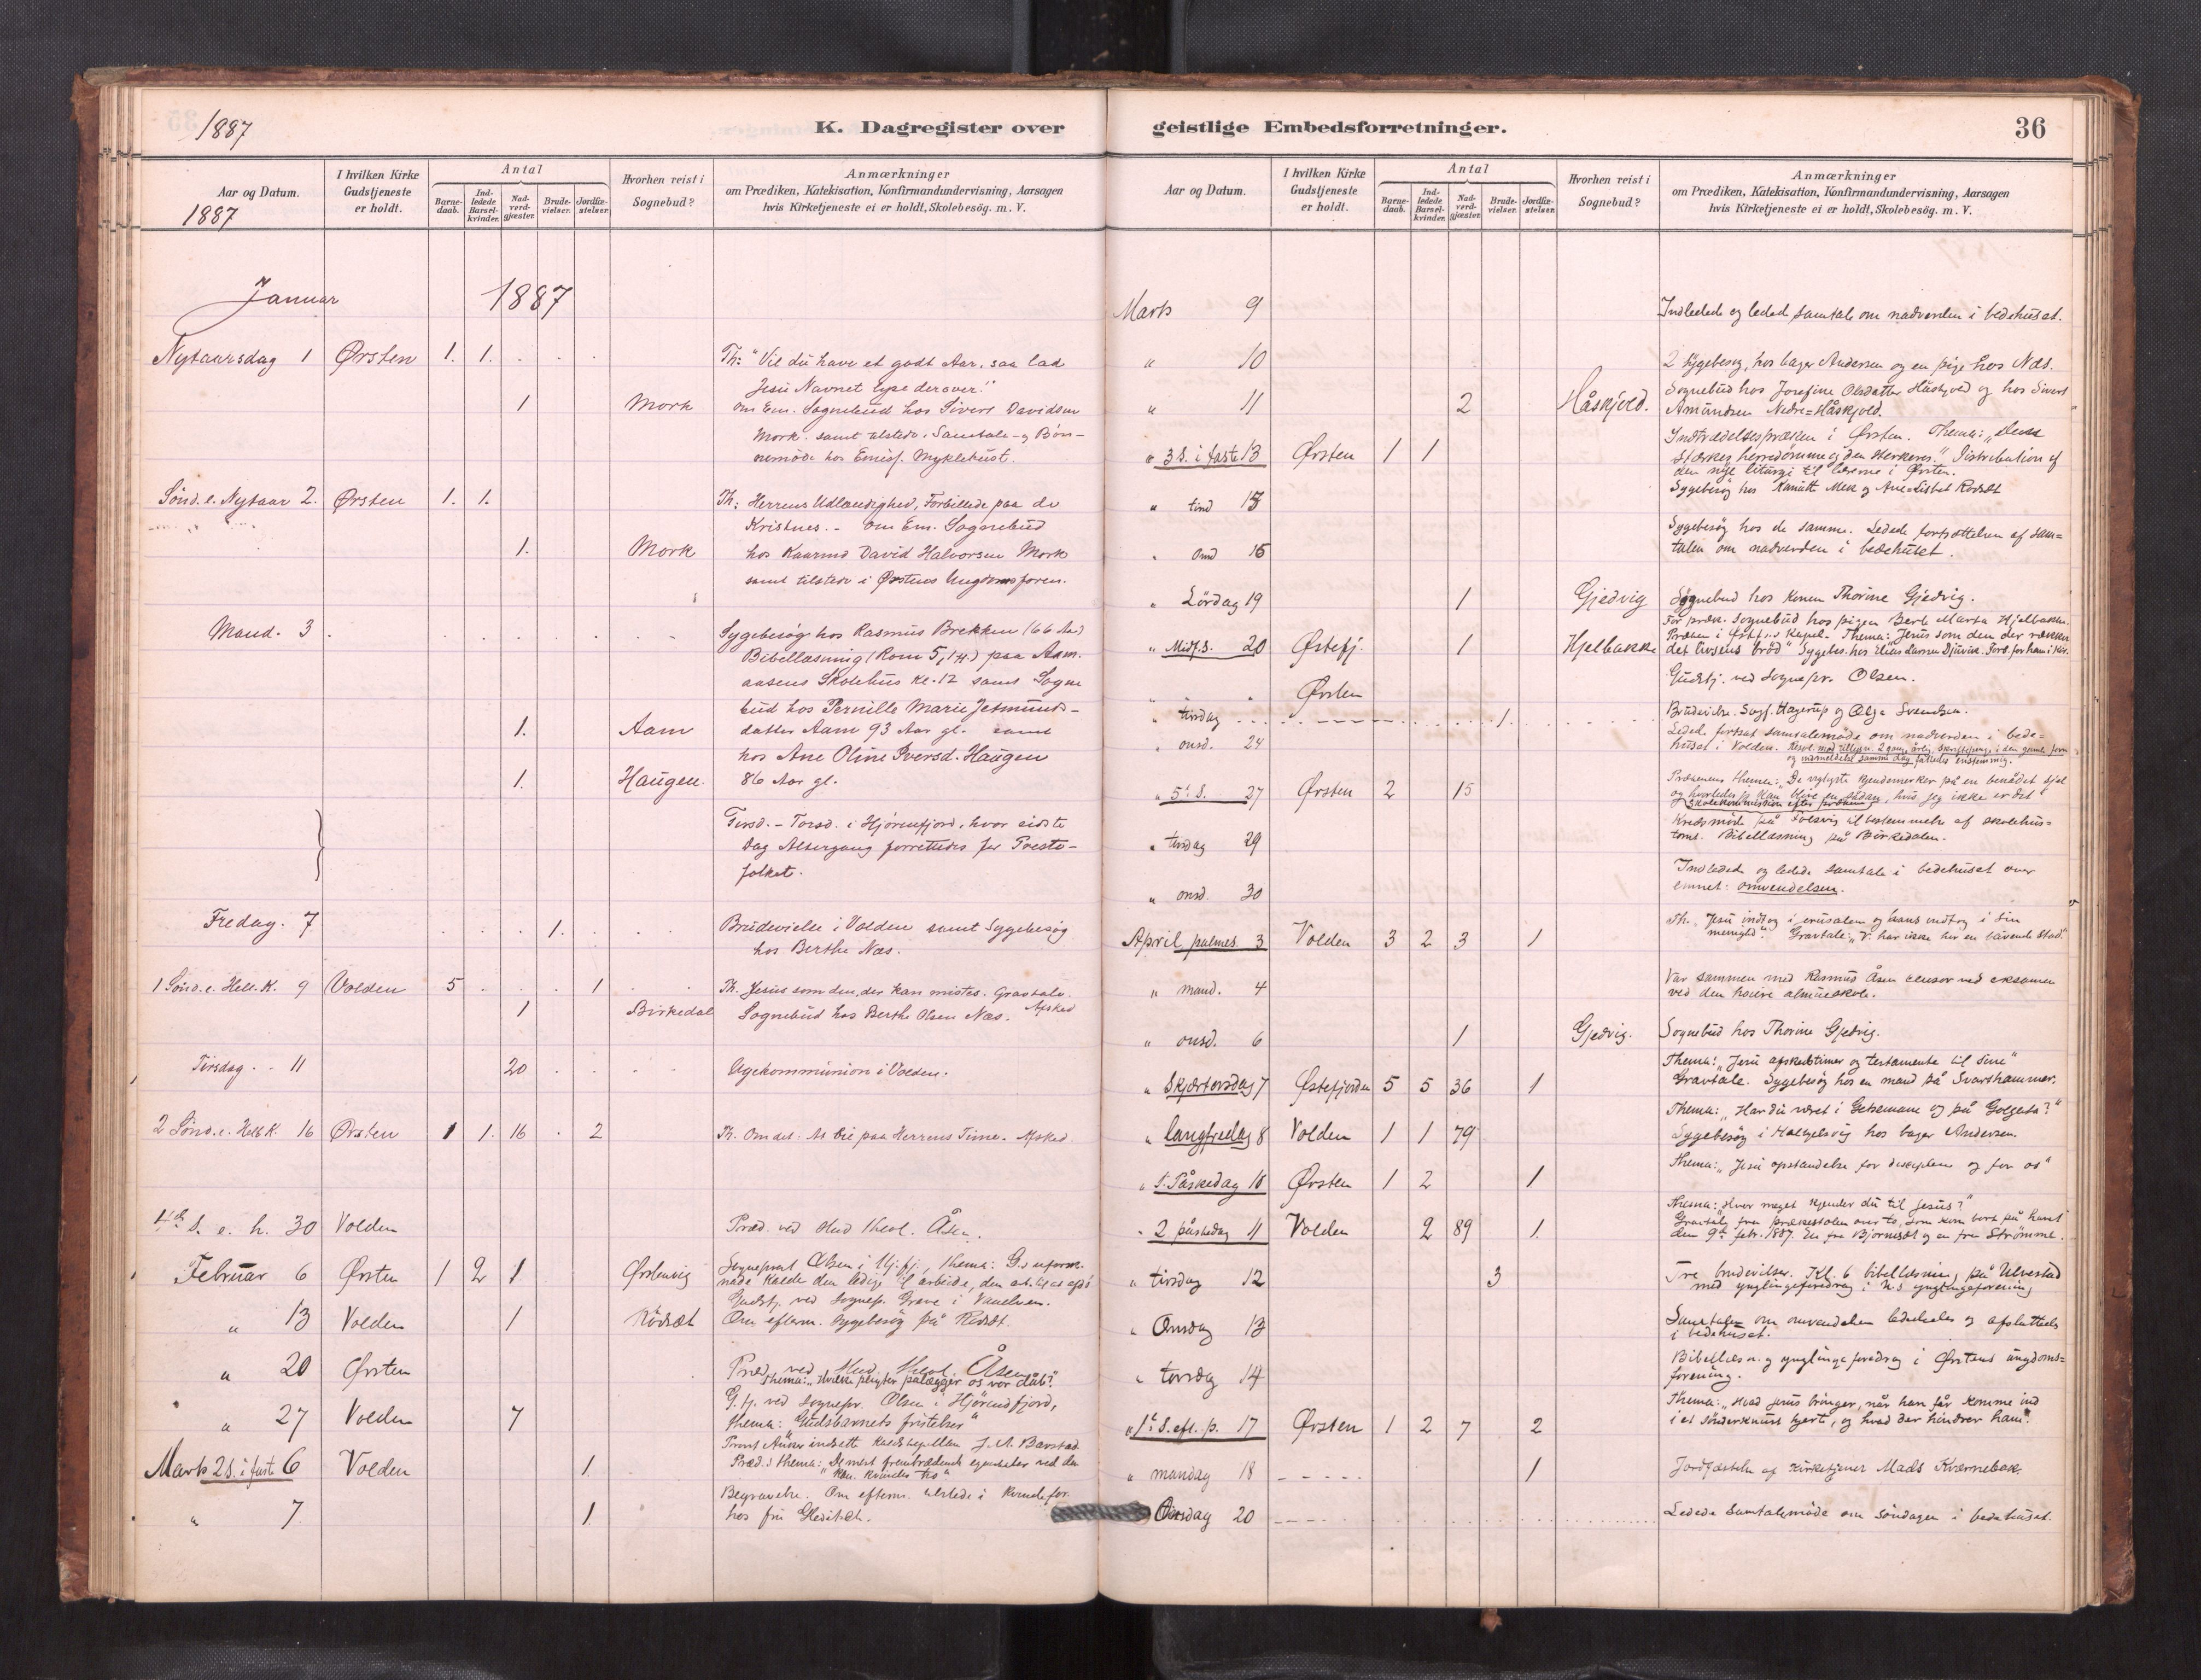 1887
K. Dagregister over
Aar og Datum.
1887
I hvilken Kirke Gudstjeneste er holdt.
Antal
Barnedaab.
Indledede Barselkvinder.
Nadverdgjæster.
Brudevielser.
Jordfæstelser.
Hvorhen reist i Sognebud?
Anmærkninger
om Prædiken, Katekisation, Konfirmandundervisning, Aarsagen
hvis Kirketjeneste ei er holdt, Skolebesög. m. V.
Januar 1887
Nytaarsdag 1 Ørsten 1. 1. . . . Th: "Vil du have et godt Aar, saa lad
Jesu Navnet lyse derover!"
1 Mork om Em. Sognebud hos Sivert Davidsen
Mork. samt tilstede i Samtale- og Bön-
nemöde hos Emis. Myklebust.
Sönd. e. Nytaar 2. Ørsten 1. 1. Th: Herrens Udlændighed, Forbillede paa de
Kristnes. - Om Em. Sognebud
1. Mork hos Kaarmd David Halvorsen Mork
samt tilstede i Ørstens Ungdomsforen.
Mand. 3 Sygebesög hos Rasmus Brekken (66 Aar)
Bibellæsning (Rom 5, 1 ff.) paa Aam-
aasens Skolehus kl. 12 samt Sogne
bud hos Pernille Marie Jetmunds-
1. Aam datter Aam 93 Aar gl. samt
hos Ane Oline Iversd. Haugen
1. Haugen. 86 Aar gl.
Tirsd. - Torsd. i Hjörundfjord, hvor sidste
Dag Altergang forrettedes for Preste-
folket.
Fredag. 7 1. Brudevielse i Volden samt Sygebesög
hos Berthe Næs.
1 Sönd. e. Hell. K. 9 Volden 5 1 Th. Jesus som den, der kan mistes. Gravtale.
1 Birkedal Sognebud hos Berthe Olsen Næs. Afsked
Tirsdag . . 11 20 Ugekommunion i Volden.
2 Sönd. e. Hell K. 16 Ørsten 1 1. 16 . 2 Th. Om det: At bie paa Herrens Time. Afsked.
4de S. e. h. 30 Volden Præd. ved stud theol. Åsen.
Februar 6 Ørsten 1 2 1 Ørstenvig Sogneprest Olsen i Hj.fj., Thema:
nade kalde den ledige til arbeide,
Gudstj. ved sognepr. Greve i Vanelven.
" 13 Volden 1 Rödsæt Om efterm. sygebesög på Rödsæt.
" 20 Ørsten Præd. ved Stud. theol. Åsen
Thema: "Hvilke pligter pålægger os vor dåb?"
G.tj. ved sognepr. Olsen i Hjörundfjord,
" 27 Volden 7 Thema: "Gudsbarnets fristelser"
Provst Aunsr indsatte kaldskapellan J. M. Barstad.
Marts 2 S. i faste 6 Volden 1. Præd.s Thema: "De mest fremtrædende egenskaber ved den
kan. kvindes tro"
Begravelse. Om efterm. tilstede i kvindefor.
" 7. 1. hos fru Gleditsch.
geistlige Embedsforretninger.
36
Aar og Datum.
I hvilken Kirke Gudstjeneste er holdt.
Antal
Barnedaab.
Indledede Barselkvinder.
Nadverdgjæster.
Brudevielser.
Jordfæstelser.
Hvorhen reist i Sognebud?
Anmærkninger
om Prædiken, Katekisation, Konfirmandundervisning, Aarsagen
hvis Kirketjeneste ei er holdt, Skolebesög. m. V.
Marts 9 Indledede og ledede samtale om nadverden i bedehuset.
" 10 2 sygebesög, hos bager Andersen og en pige hos Næs.
Sognebud hos Josefine Olsdatter Håskjold og hos Sivert
" 11 2 Håskjold. Amundsen Nedre-Håskjold.
Indtrædelsespræken i Ørsten. Thema: "Den
" 3 S. i faste 13 Ørsten 1 1 stærkes herredömme og den sterkeres." Distribution af
den nye liturgi til læserne i Ørsten.
Sygebesög hos Knutt Mek og Ane-Lisbet Rödsæt
" tirsd 15
Sygebesög hos de samme. Ledede fortsættelsen af sam-
" Onsd 16 talen om nadverden i bedehuset.
" Lördag 19 1 Gjedvig Sognebud hos konen Thorine Gjedvig.
För præk. Sognebud hos pigen Berte Marta Hjelbakke.
Præken i Østefj.s kapel. Thema: "Jesus som den der rækker
" Midf. S. 20 Østefj. 1 Hjelbakke det livsens bröd" Sygebes. hos Elias Larsen Djuvik. Forb. for ham i kir.
" " Ørsten Gudstj. ved Sognepr. Olsen.
" tirsdag 1. Brudevielse. Sagf. Hagerup og Olga Svendsen.
Ledede fortsat samtalemöde om nadverden i bede-
" onsd. 24 huset i Volden.
og indmeldelse samme dag
Prækenens thema: "De vigtigste kjendemerker på en benådet sjel
" 5te S. 27 Ørsten 2 15 og hvorledes jeg kan blive en sådan, hvis jeg ikke er det"
Skolekommission efter præken
Kredsmöde på Folkestad til bestemmelse af skolehus-
" tirsdag 29 tomt. Bibellæsning på Birkedalen.
Indledede og ledede samtale i bedehuset over
" onsd. 30 emnet: omvendelsen.
Th. "Jesu indtog i Jerusalem og hans indtog i sin
April palmes. 3 Volden 3 2 3 1 menighd". Gravtale: "V. har ikke her en blivende Stad."
Var sammen med Rasmus Åsen censor ved eksamen
" mand. 4 ved den höiere almueskole.
" onsd. 6 1 Gjedvig. Sognebud hos Thorine Gjedvig.
Thema: "Jesu afskedstimer og testamente til sine"
" Skjærtorsdag 7 Østefjorden 5 5 36 1 Gravtale. Sygebesög hos en mand på Svarshammer.
Thema: "Har du været i Getsemane og på Golgata?"
" langfredag 8 Volden 1 1 79 Sygebesög i Halkjelsvig hos bager Andersen.
" 1. Påskedag 10 Ørsten 1 2 1 Thema: "Jesu opstandelse for disciplene og for os"
Thema: "Hvor meget kjender du til Jesus?"
" 2 påskedag 11 Volden 2 89 1. Gravtale fra prækestolen over to, som kom bort på havet
den 9de febr. 1887. En fra Bjørnesæt og en fra Strømme.
" tirsdag 12 3 Tre brudevielser. Kl. 6 bibellæsning på Ulvestad
med ynglingeforedrag i U.s ynglingeforening
" Onsdag 13 Samtalen om omvendelsen lededes og afsluttedes
i bedehuset.
Bibellæsn. og ynglinge foredrag i Ørstens ungdoms-
" torsdag 14 forening.
Thema: "Hvad Jesus bringer, når han får komme ind
" 1te S. eft. p. 17 Ørsten 1 2 7 2 i et sönderknust hjerte, og hvad der hindrer ham".
" mandag 18 1 Jordfæstelse af kirketjener Mads Kværnebak.
Onsdag 20 Ledede samtalemöde om söndagen i bedehuset.